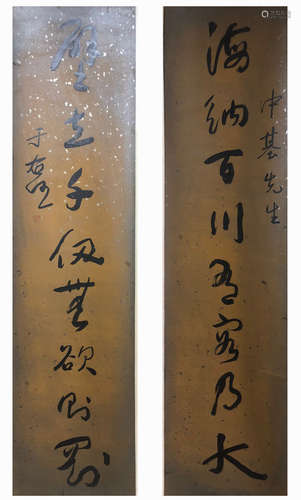 海納百川有容乃大
基先生
壁立千仞無欲則剛
于右任